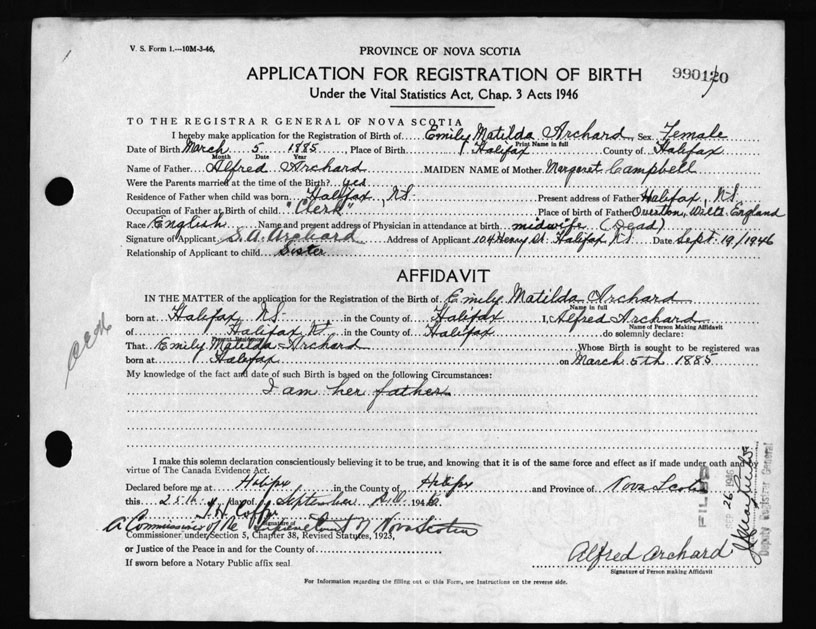 V. S. Form 1.—10M-3-46.
PROVINCE OF NOVA SCOTIA
APPLICATION FOR REGISTRATION OF BIRTH
990120
Under the Vital Statistics Act, Chap. 3 Acts 1946
TO THE REGISTRAR GENERAL OF NOVA SCOTIA
I hereby make application for the Registration of Birth of Emily Matilda Archard, Sex Female
Print Name in full
Date of Birth March 5 1885, Place of Birth Halifax County of Halifax
Month Date Year
Name of Father Alfred Archard MAIDEN NAME of Mother Margaret Campbell
Were the Parents married at the time of the Birth? yes
Residence of Father when child was born Halifax NS. Present address of Father Halifax, N.S.
Occupation of Father at Birth of child "Clerk" Place of birth of Father Overton, Wilts England
Race English Name and present address of Physician in attendance at birth midwife (Dead)
Signature of Applicant S. A. Archard Address of Applicant 104 Henry St. Halifax N.S Date Sept. 19/1946
Relationship of Applicant to child Sister
AFFIDAVIT
IN THE MATTER of the application for the Registration of the Birth of Emily Matilda Archard
Name in full
born at Halifax NS. in the County of Halifax I, Alfred Archard
Name of Person Making Affidavit
of Halifax N.S. in the County of Halifax do solemnly declare:
Present Residence
That Emily Matilda Archard Whose Birth is sought to be registered was
born at Halifax on March 5th 1885
My knowledge of the fact and date of such Birth is based on the following Circumstances:
I am her father
I make this solemn declaration conscientiously believing it to be true, and knowing that it is of the same force and effect as if made under oath and
virtue of The Canada Evidence Act.
Declared before me at Halifax in the County of Halifax and Province of Nova Scotia
this 25th day of September A.D. 1946
A Commissioner of the Supreme Court of Nova Scotia
Signature of
Commissioner under Section 5, Chapter 38, Revised Statutes, 1923,
or Justice of the Peace in and for the County of
If sworn before a Notary Public affix seal
Alfred Archard
Signature of Person making Affidavit
For Information regarding the filling out of this Form, see Instructions on the reverse side.
FILED
26 1946
Deputy Registrar General